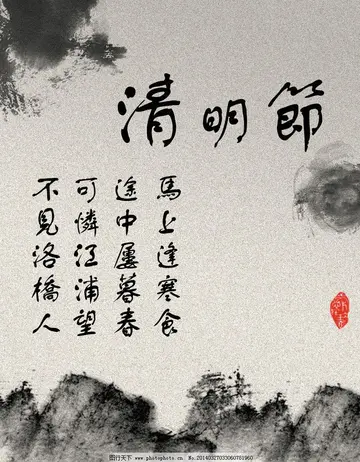 清明節
馬上逢寒食
途中屢暮春
可憐江浦望
不見洛橋人
图行天下 www.photophoto.cn No.20140327033060781960